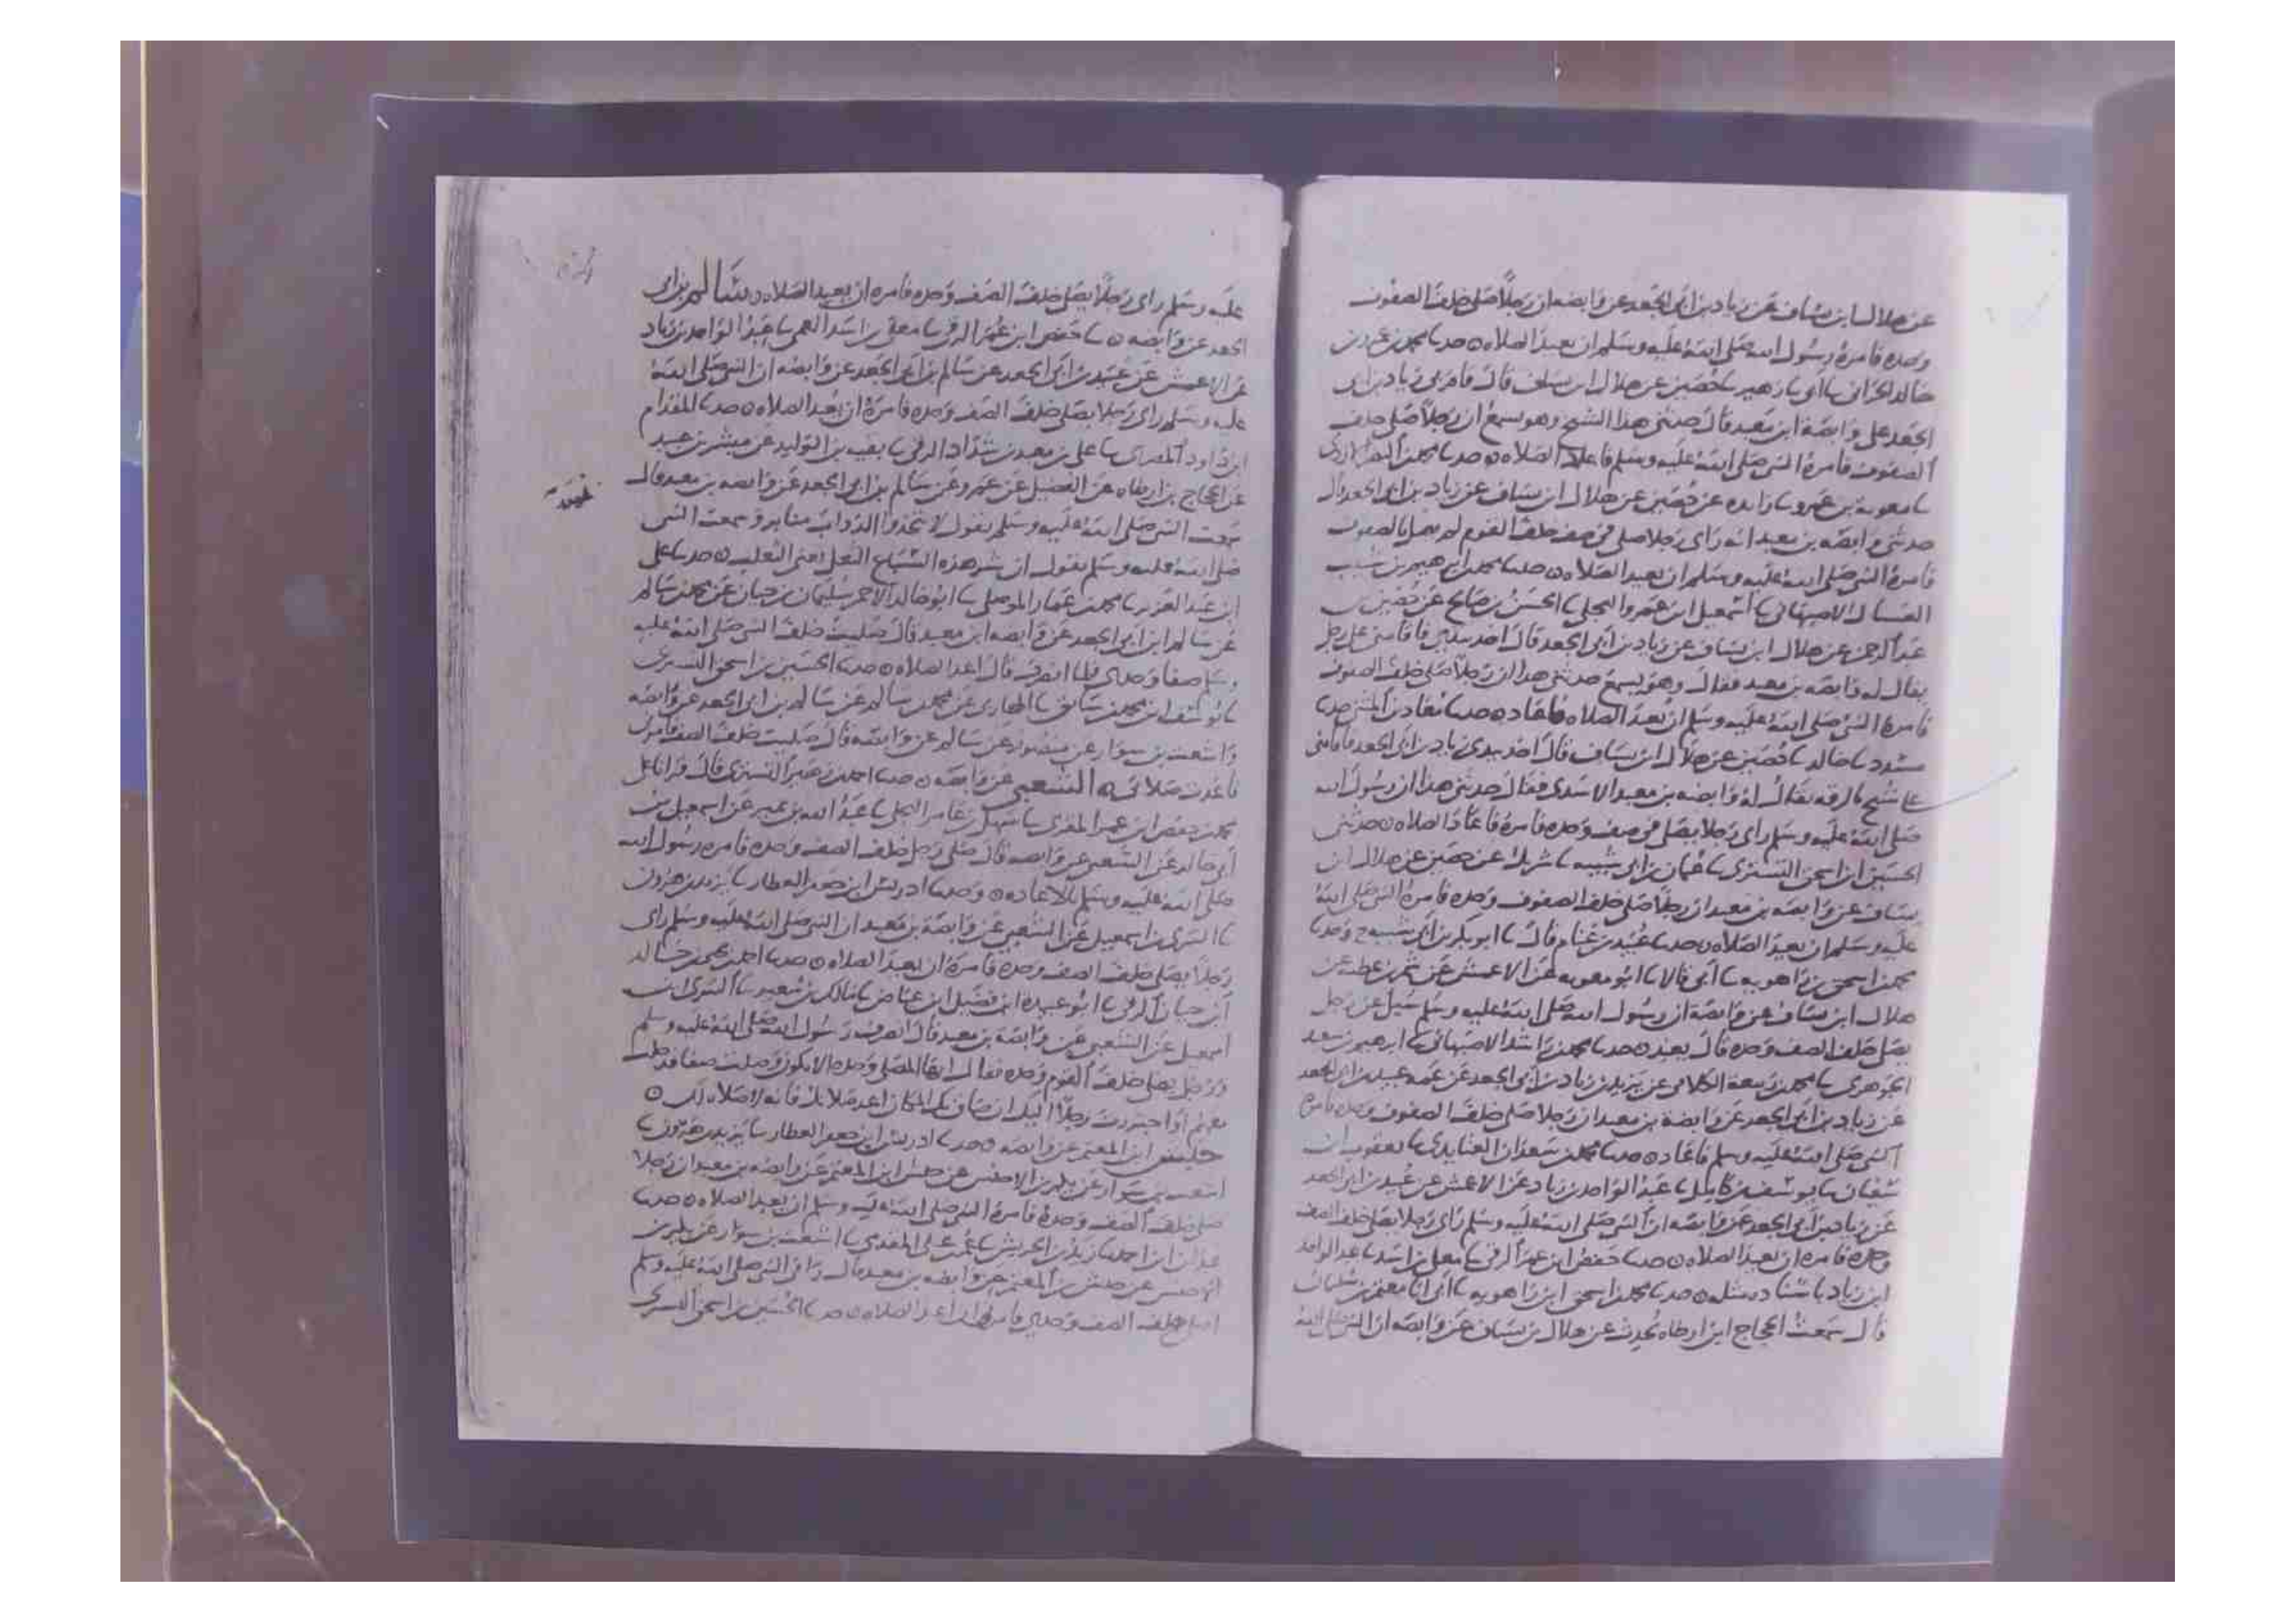 عن هلال ابن يساف عن زياد بن ابى الجعد عن وابصه ان رجلا صلى خلف الصفوف
وحده فامره رسول الله صلى الله عليه وسلم ان يعيد الصلاه ٥ حدسا محمد بن عمرو بن
خالد الحرانى سا ابى سا زهير سا حصين عن هلال ابن يساف قال قام بى زياد بن ابى
الجعد على وابصة ابن معبد قال حدثنى هذا الشيخ وهو يسمع ان رجلا صلى خلف
الصفوف فامره النبى صلى الله عليه وسلم فاعاد الصلاه ٥ حدسا محمد بن النضر الازدى
سا معويه بن عمرو سا زايده عن حصين عن هلال ابن يساف عن زياد بن ابى الجعد قال
حدثنى وابصه بن معبد انه راى رجلا صلى فى صف خلف القوم لم يصل بالصفوف
فامره النبى صلى الله عليه وسلم ان يعيد الصلاه ٥ حدسا محمد بن ابرهيم بن شبيب
العسال الاصبهانى سا اسمعيل ابن عمرو البجلى سا الحسن بن صالح عن حصين بن
عبد الرحمن عن هلال ابن يساف عن زياد بن ابى الجعد قال اخذ بيدى فاقامنى على رجل
يقال له وابصه بن معبد فقال وهو يسمع حدثنى هذا ان رجلا صلى خلف الصفوف
فامره النبى صلى الله عليه وسلم ان يعيد الصلاه فاعاد ٥ حدسا معاذ بن المثنى سا
مسدد سا خالد سا حصين عن هلال ابن يساف قال اخذ بيدى زياد بن ابى الجعد فاقامنى
على شيخ بالرقه يقال له وابصه بن معبد الاسدى فقال حدثنى هذا ان رسول الله
صلى الله عليه وسلم راى رجلا يصلى فى صف وحده فامره فاعاد الصلاه ٥ حدثنى
الحسين ابن اسحق التسترى سا عثمان بن ابى شيبه سا شريك عن حصين عن هلال ابن
يساف عن وابصه بن معبد ان رجلا صلى خلف الصفوف وحده فامره النبى صلى الله
عليه وسلم ان يعيد الصلاه ٥ حدسا عبيد بن غنام قال سا ابو بكر بن ابى شيبه ح وحدسا
محمد بن اسحق بن راهويه سا ابى قالا سا ابو معويه عن الاعمش عن شمر بن عطيه عن
هلال ابن يساف عن وابصة ان رسول الله صلى الله عليه وسلم سيل عن رجل
يصلى خلف الصف وحده قال يعيد ٥ حدسا محمد بن راشد الاصبهانى سا ابرهيم بن سعيد
الجوهرى سا محمد بن ربيعة الكلابى عن يزيد بن زياد بن ابى الجعد عن عمه عبيد بن ابى الجعد
عن زياد بن ابى الجعد عن وابصة بن معبد ان رجلا صلى خلف الصفوف وحده فامره
النبى صلى الله عليه وسلم فاعاد ٥ حدسا محمد بن سعدان سا يعقوب ابن
سفيان سا يوسف بن كامل سا عبد الواحد بن زياد عن الاعمش عن عبيد بن ابى الجعد
عن زياد بن ابى الجعد عن وابصه ان النبى صلى الله عليه وسلم راى رجلا يصلى خلف الصف
وحده فامره ان يعيد الصلاه ٥ حدسا حفص ابن عمر الرقى سا معلى بن اسد سا عبد الواحد
ابن زياد باسناده مثله ٥ حدسا محمد بن اسحق ابن راهويه سا ابى انا معتمر بن سليمان
قال سمعت الحجاج ابن ارطاه يحدث عن هلال بن يساف عن وابصه ان النبى صلى الله
عليه وسلم راى رجلا يصلى خلف الصف وحده فامره ان يعيد الصلاه ٥ سالم بن ابى
الجعد عن وابصه ٥ سا حفص ابن عمر الرقى سا معلى بن اسد العمى سا عبد الواحد بن زياد
عن الاعمش عن عبيد بن ابى الجعد عن سالم بن ابى الجعد عن وابصه ان النبى صلى الله
عليه وسلم راى رجلا يصلى خلف الصف وحده فامره ان يعيد الصلاه ٥ حدسا المقدام
ابن داود المصرى سا على بن معبد بن شداد الرقى سا بقيه بن الوليد عن مبشر بن عبيد
عن الحجاج بن ارطاه عن الفضيل عن عمرو عن سالم بن ابى الجعد عن وابصه بن معبد قال
سمعت النبى صلى الله عليه وسلم يقول لا تتخذوا الدواب منابر وسمعت النبى
صلى الله عليه وسلم يقول ان شر هذه السباع الثعل يعنى الثعلب ٥ حدسا على
ابن عبد العزيز سا محمد بن عمار الموصلى سا ابو خالد الاحمر سليمان بن حيان عن محمد بن سالم
عن سالم ابن ابى الجعد عن وابصه ابن معبد قال صليت خلف النبى صلى الله عليه
وسلم صفا وحدى فلما انصرف قال اعد الصلاه ٥ حدسا الحسين بن اسحق التسترى
سا يوسف ابن محمد بن سابق سا المحاربى عن محمد بن سالم عن سالم بن ابى الجعد عن وابصه
واشعث بن سوار عن منصور عن سالم عن وابصه قال صليت خلف الصف فامرنى
فاعدت صلاتى ٥ الشعبى عن وابصه ٥ حدسا احمد بن زهير التسترى قال قرانا على
محمد بن حفص ابن عمر المقرى سا سهل بن عامر البجلى سا عبد الله بن نمير عن اسمعيل بن
ابى خالد عن الشعبى عن وابصه قال صلى رجل خلف الصف وحده فامره رسول الله
صلى الله عليه وسلم بالاعاده ٥ وحدسا ادريس ابن جعفر العطار سا يزيد بن هرون
سا السرى بن اسمعيل عن الشعبى عن وابصة بن معبد ان النبى صلى الله عليه وسلم راى
رجلا يصلى خلف الصف وحده فامره ان يعيد الصلاه ٥ حدسا احمد بن محمد بن خالد
ابن حيان الرقى سا ابو عبيدة ابن فضيل ابن عياض سا مالك بن سعير سا السرى ابن
اسمعيل عن الشعبى عن وابصة بن معبد قال انصرف رسول الله صلى الله عليه وسلم
ورجل يصلى خلف القوم وحده فقال ايها المصلى وحده الا تكون وصلت صفا فدخلت
معهم او اجتررت رجلا اليك ان ضاق بك المكان اعد صلاتك فانه لا صلاه لك ٥
حنش ابن المعتمر عن وابصه ٥ حدسا ادريس ابن جعفر العطار سا يزيد بن هرون سا
اشعث بن سوار عن بكير بن الاخنس عن حنش ابن المعتمر عن وابصه بن معبد ان رجلا
صلى خلف الصف وحده فامره النبى صلى الله عليه وسلم ان يعيد الصلاه ٥ حدسا
عبدان ابن احمد سا زيد بن الحريش سا عمر بن على المقدمى سا اشعث بن سوار عن بكير بن
الاخنس عن حنش بن المعتمر عن وابصه بن معبد قال رانى النبى صلى الله عليه وسلم
اصلى خلف الصف وحدى فامرنى ان اعيد الصلاه ٥ حدسا الحسين بن اسحق التسترى